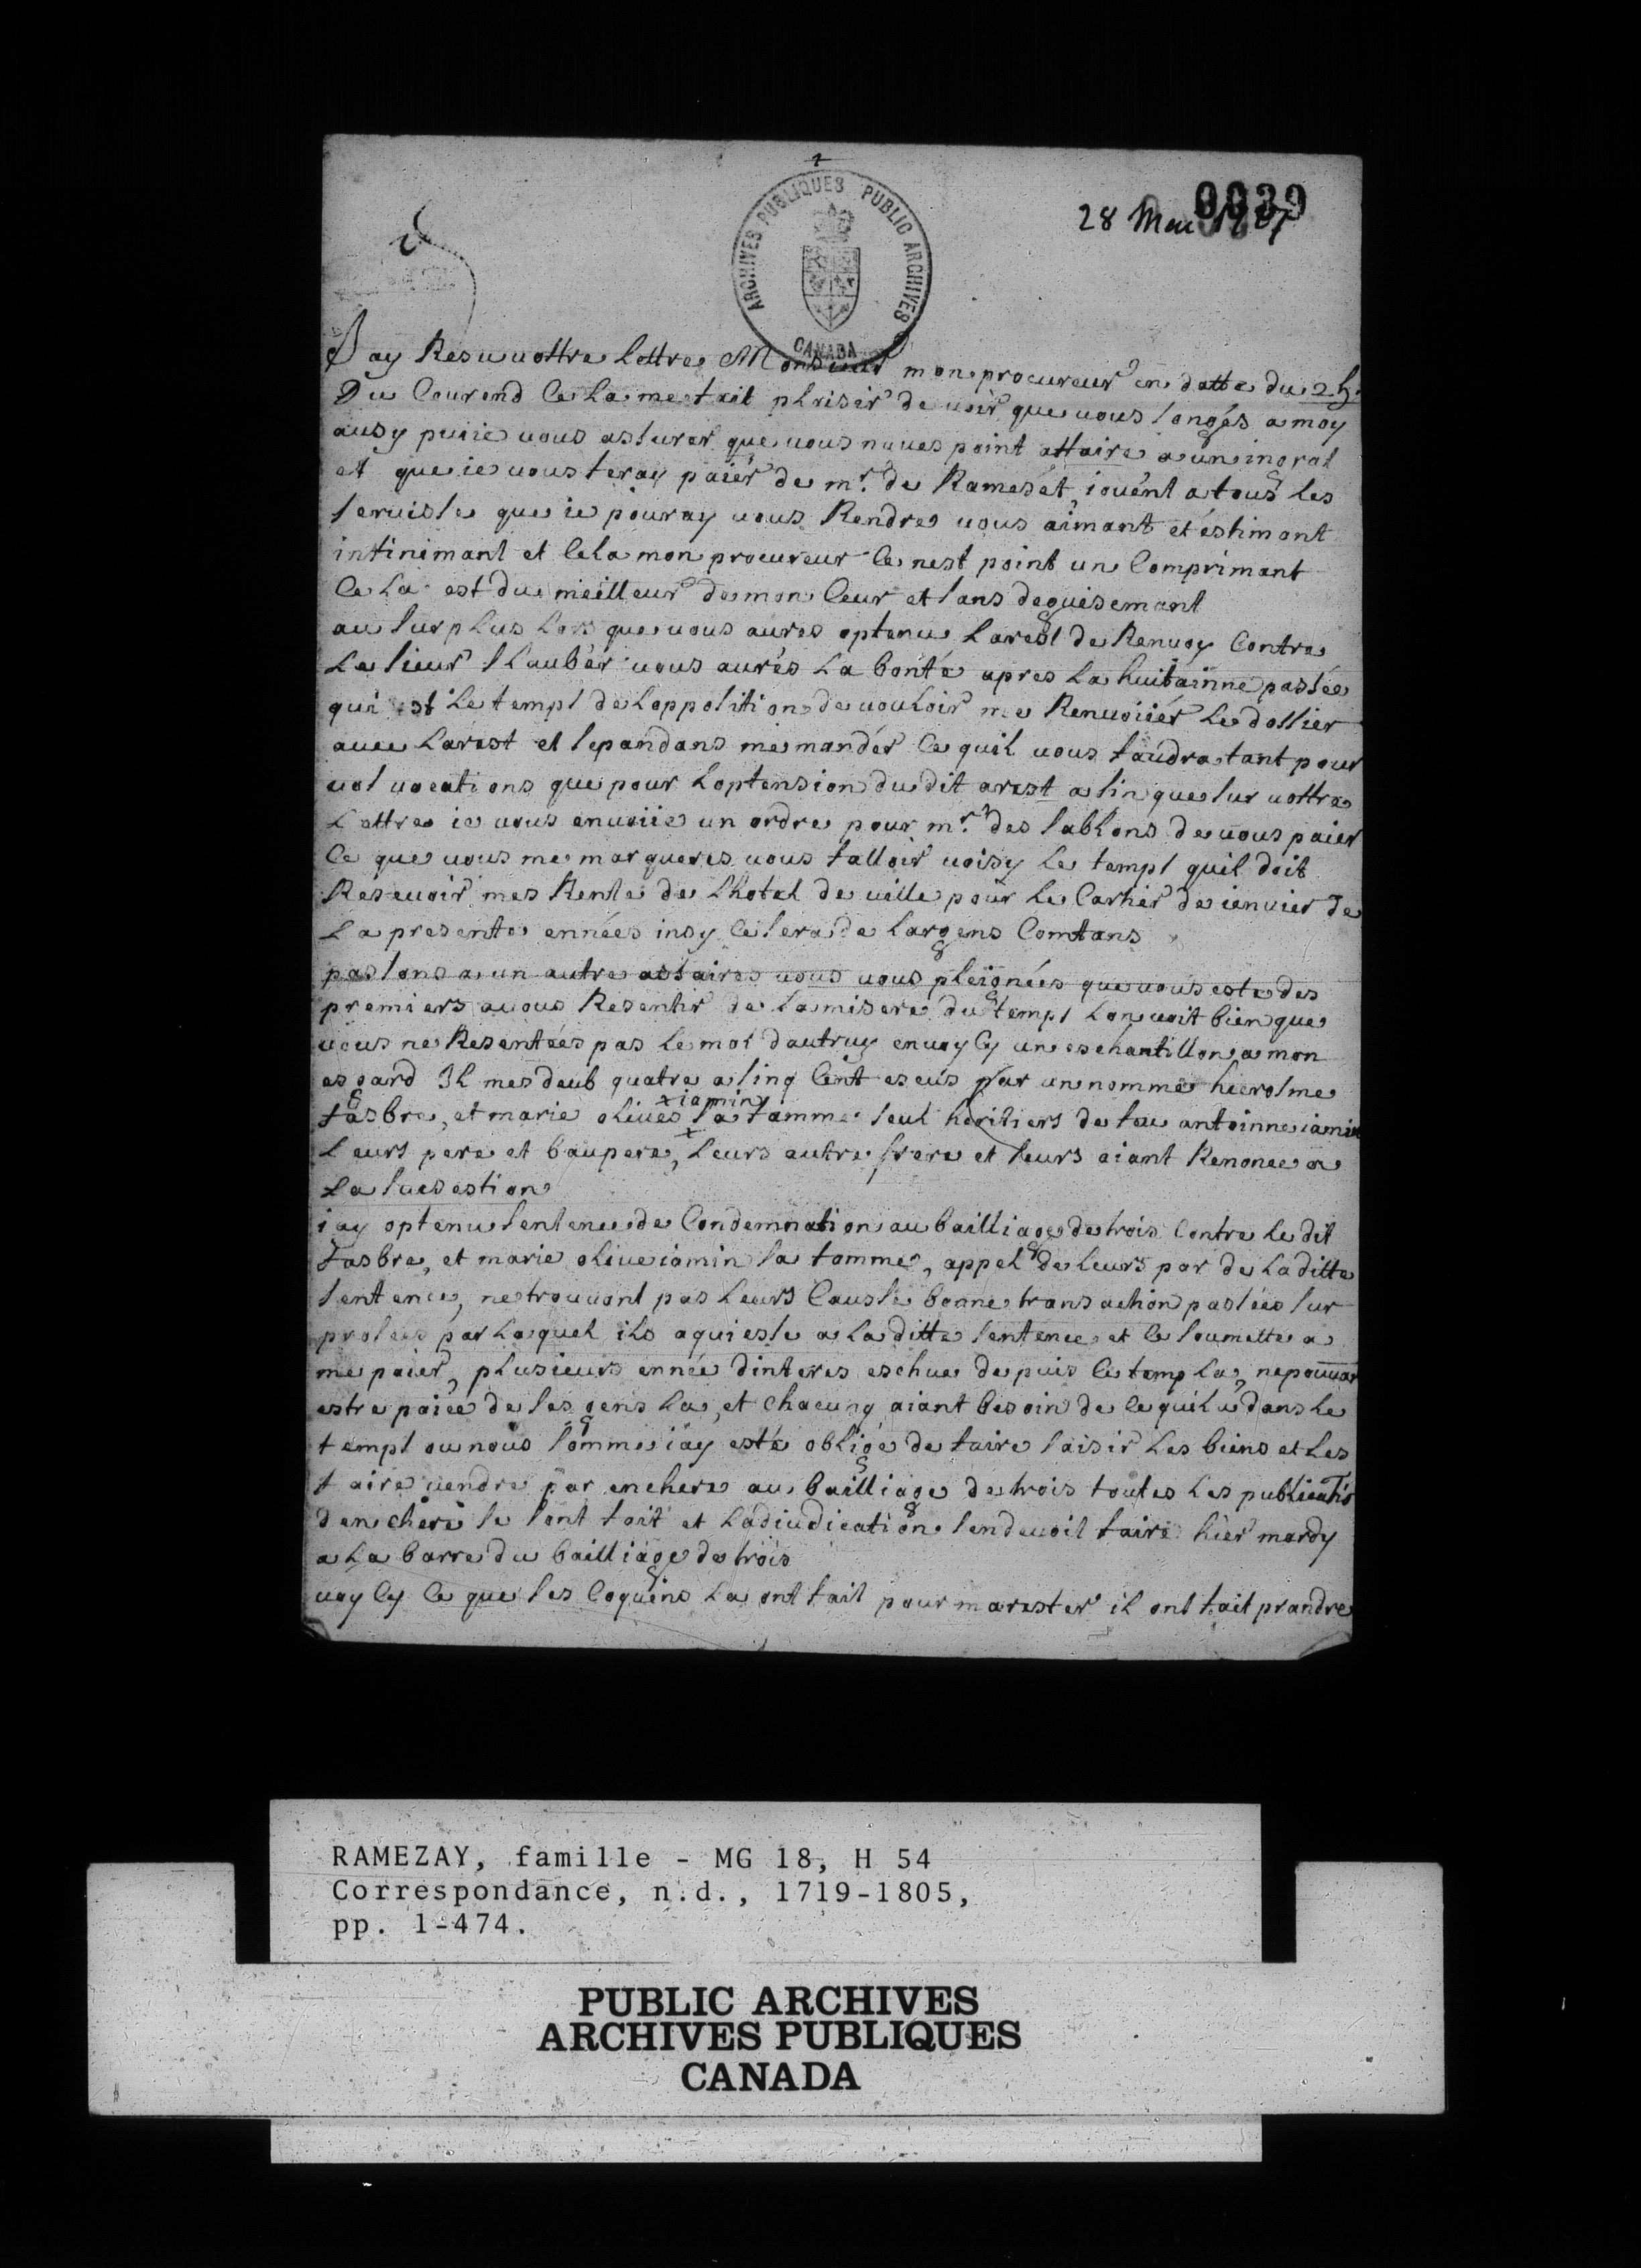 0039
28 Mai
ARCHIVES PUBLIQUES PUBLIC ARCHIVES
CANADA
Jay Resu vottre lettre Monsieur mon procureur en datte du 25.
Du Courend Cela me fait plaisir de voir que vous songés a moy
ausy puiie vous assurer que vous naves point affaire a un ingrat
et que ie vous feray païer de mr. de Rameset, iouént a tous les
servisse que ie pouray vous Rendre vous aimant et éstimant
infinimant et Cela mon procureur Ce nest point un Comprimant
Cela est du meilleur de mon Ceur et sans deguisemant
au surplus lors que vous aures optenu larest de Renvoy Contre
Le sieur flaubér vous aurés La bonté apres La huitainne passée
qui est Le temps de loppositions de vouloir me Renvoiiér Le dossier
avec Larest et sepandans me mandér Ce quil vous faudra tant pour
vos vocations que pour Loptension du dit arest afin que sur vottre
Lettre ie vous envoiie un ordre pour mr. des sablons de vous paier
Ce que vous me marqueres vous falloir voisy Le temps quil doit
Resevoir mes Rente de Lhotel de ville pour Le Cartier de ienvier de
La presente ennées insy Ce sera de Largens Comtans
passons a un autre affaires vous vous pleignées que vous este des
premiers a vous Resentir de La misere du temps Lon voit bien que
vous ne Resentées pas Le mal dautruy en voy Cy un eschantillon a mon
esgard Il mes deub quatre a sinq Cent escús par un nommé hierosme
x iamin
fasbre, et marie olives x sa famme seul héritiers de feu antoinne iamin
Leurs pere et baupere, Leurs autre frere et seurs aiant Renonce a
La sucsestion
iay optenu sentence de Condemnation au bailliage de trois Contre Le dit
fasbre, et marie olive iamin sa famme, appel de Leurs par de La ditte
sentence, ne trouvant pas Leurs Causse bonne transaction passées sur
prosées par Laquel ils aquiesse a La ditte sentence et Ce soumette a
me paier, plusieurs année dinteres eschue depuis Ce temp La, ne pouvant
estre paiée de ses gens La, et Chacung aiant besoin de Ce quil a dans Le
temps ou nous somme iay esté obligé de faire saisir Les biens et Les
faire vendre par enchere au bailliage de trois toutes Les publications
denchere se sont fait et Ladiudication sen devoit faire hier mardy
a La barre du bailliage de trois
voy Cy Ce que ses Coquins La ont fait pour marester il ont fait prandre
RAMEZAY, famille - MG 18, H 54
Correspondance, n.d., 1719-1805,
pp. 1-474.
PUBLIC ARCHIVES
ARCHIVES PUBLIQUES
CANADA